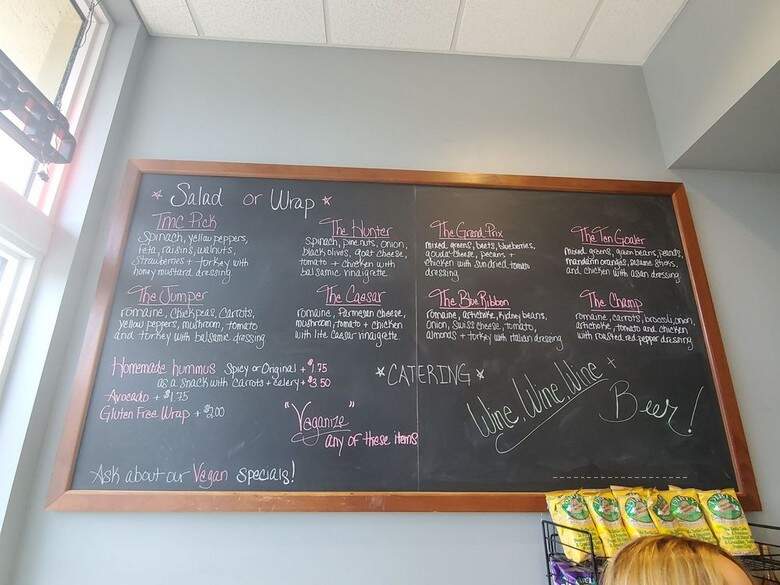 * Salad or Wrap *
TMC Pick
Spinach, yellow peppers,
feta, raisins, walnuts,
strawberries + turkey with
honey mustard dressing
The Hunter
spinach, pinenuts, onion,
black olives, goat cheese,
tomato + chicken with
balsamic vinaigrette
The Grand Prix
mixed greens, beets, blueberries,
gouda cheese, pecans +
chicken with sundried tomato
dressing
The Ten Goaler
mixed greens, green beans, peanuts,
mandarin oranges, sesame sticks,
and chicken with asian dressing
The Jumper
romaine, chickpeas, carrots,
yellow peppers, mushroom, tomato
and turkey with balsamic dressing
The Caesar
romaine, Parmesan cheese,
mushroom, tomato + chicken
with lite Caesar vinaigrette
The Blue Ribbon
romaine, artichoke, kidney beans,
onion, Swiss cheese, tomato,
almonds + turkey with italian dressing
The Champ
romaine, carrots, broccoli, onion,
artichoke, tomato and chicken
with roasted red pepper dressing
Homemade hummus Spicy or Original + $1.75
as a snack with carrots + celery + $3.50
Avocado + $1.75
Gluten Free Wrap + $2.00
"Veganize"
any of these items
*CATERING*
Wine, Wine, Wine +
Beer!
Ask about our Vegan specials!